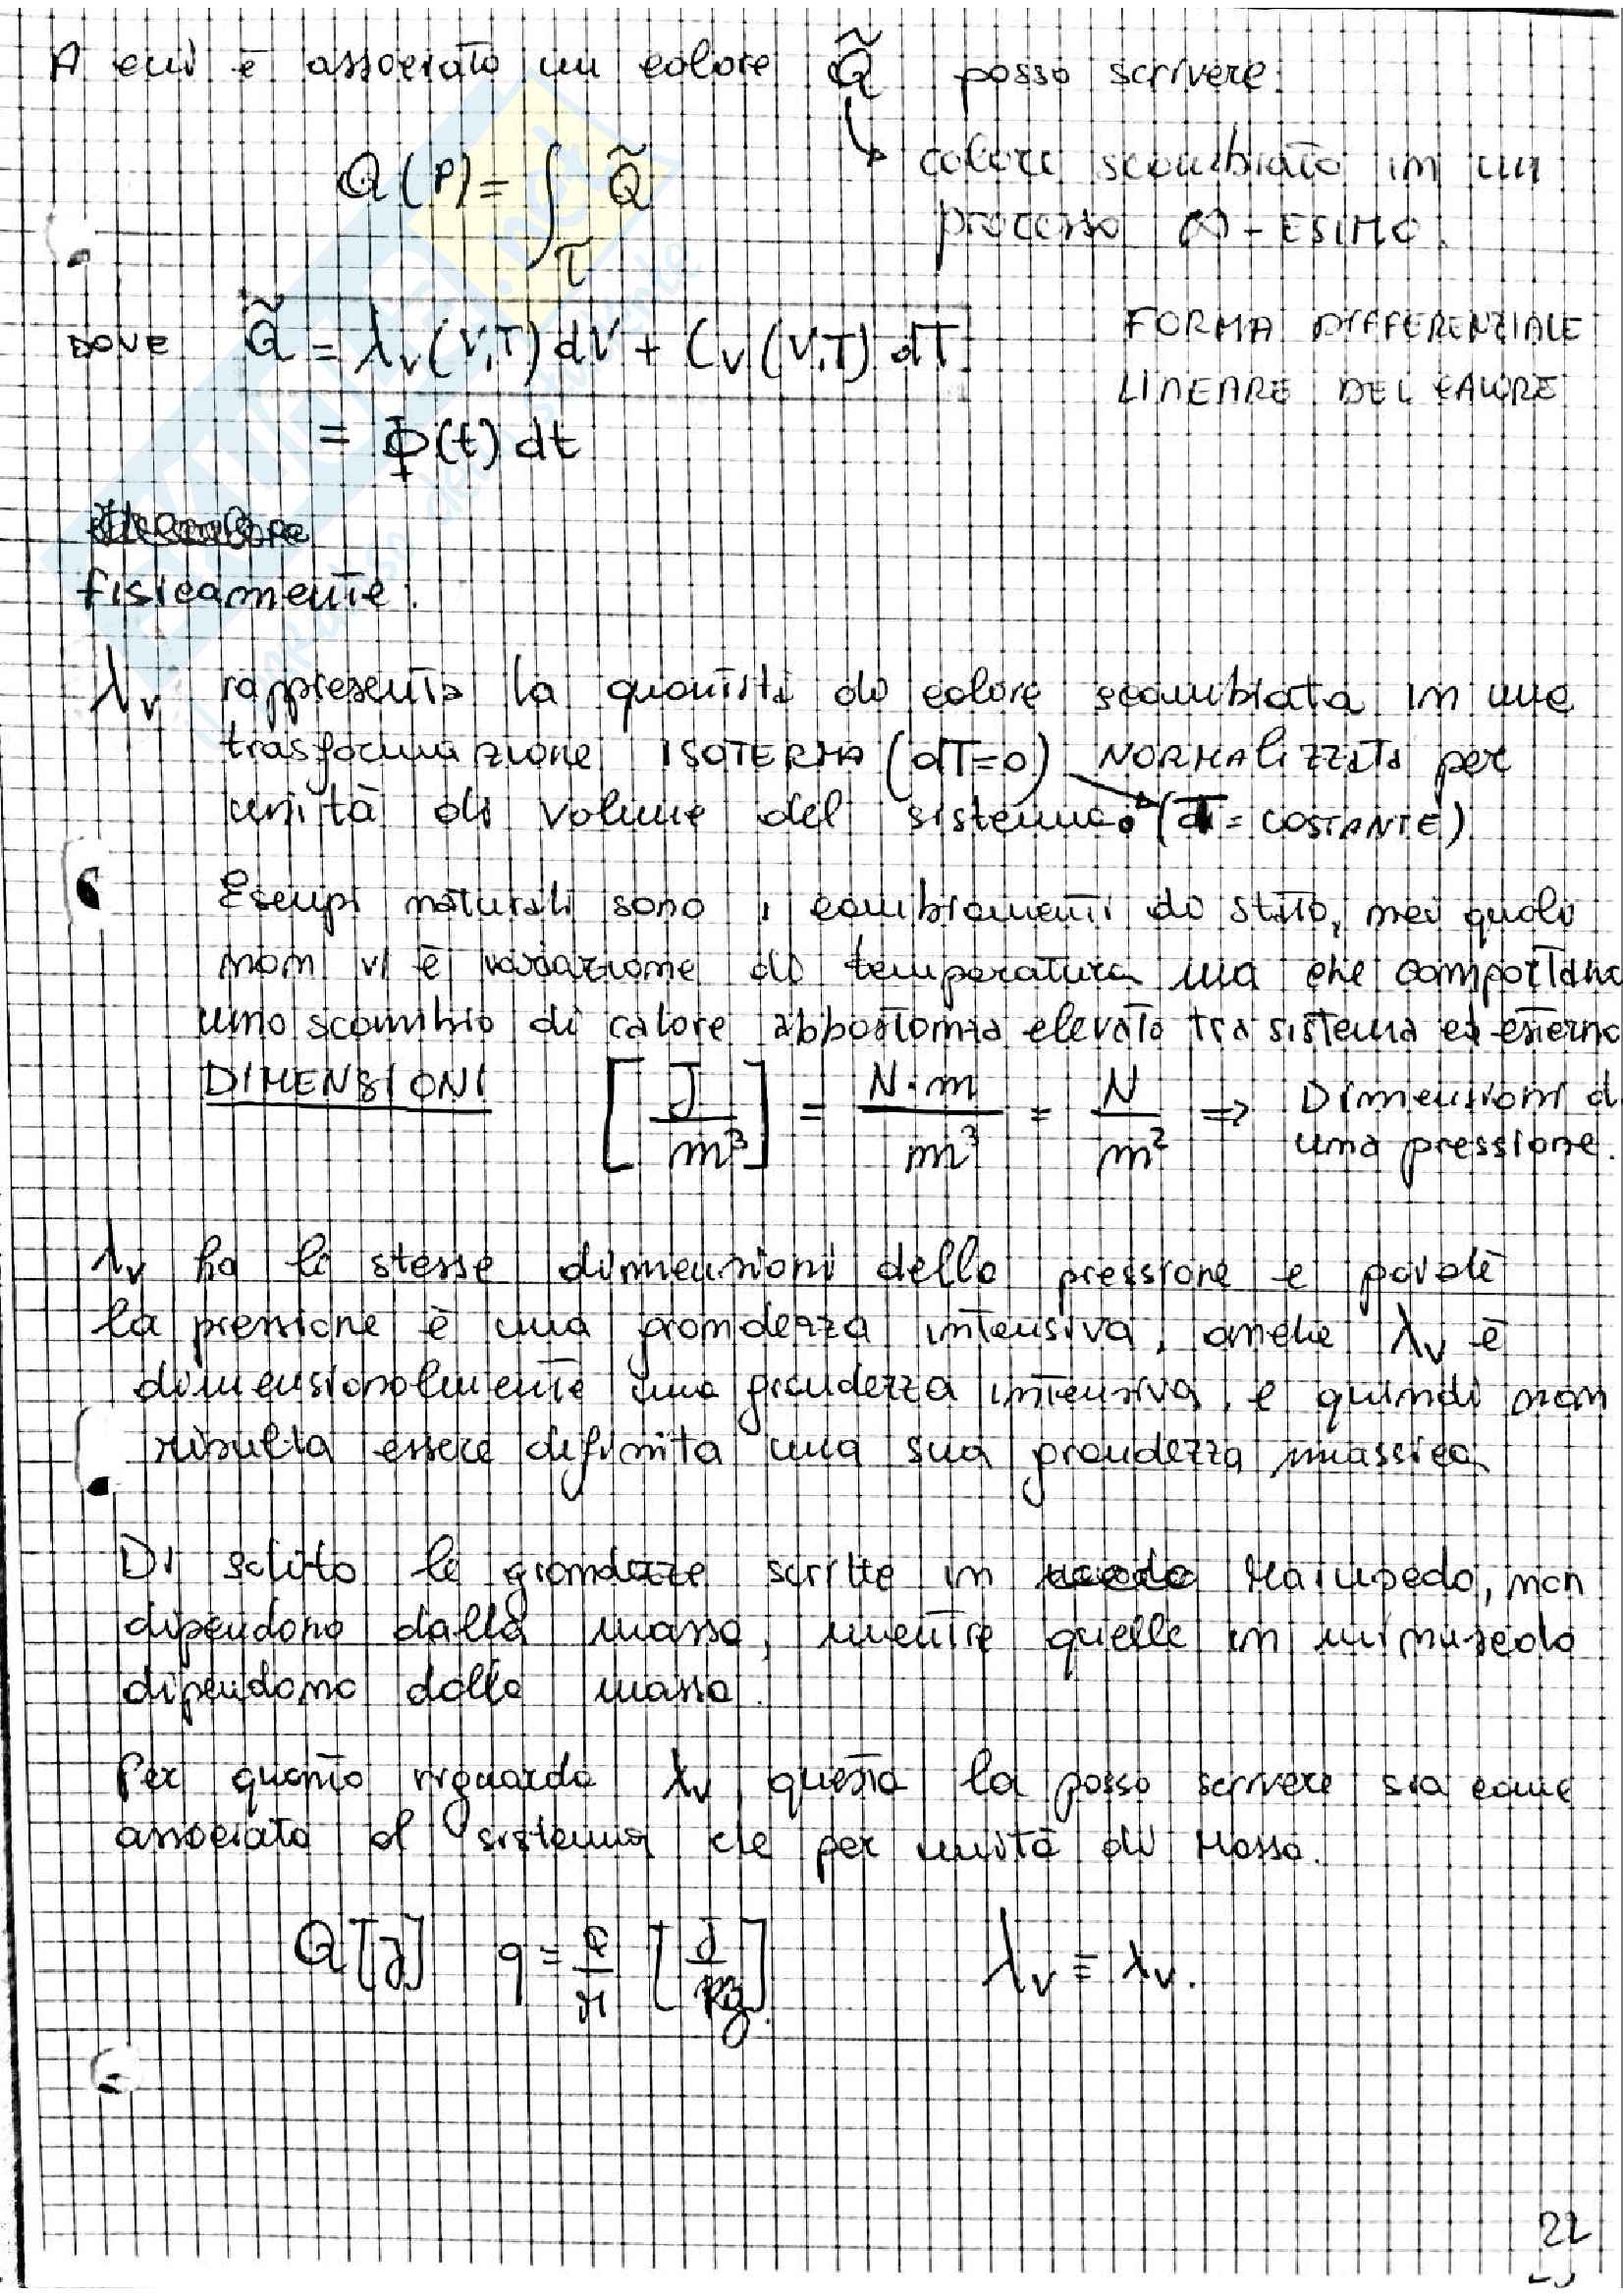 A cui è associato un calore Q̃ posso scrivere:
Q(P) = ∫τ Q̃
calore scambiato in un
processo ∞-ESIMO.
DOVE Q̃ = λv(V,T) dV + Cv(V,T) dT
FORMA DIFFERENZIALE
LINEARE DEL CALORE
= Φ(t) dt
fisicamente:
λv rappresenta la quantità di calore scambiata in una
trasformazione ISOTERMA (dT=0) NORMALIZZATA per
unità di volume del sistema. (T = COSTANTE)
Esempi naturali sono i cambiamenti di stato, nei quali
non vi è variazione di temperatura ma che comportano
uno scambio di calore abbastanza elevato tra sistema ed esterno
DIMENSIONI [J/m³] = N·m/m³ = N/m² => Dimensioni d
una pressione.
λv ha le stesse dimensioni della pressione e poiché
la pressione è una grandezza intensiva, anche λv è
dimensionalmente una grandezza intensiva, e quindi non
risulta essere definita una sua grandezza massica
Di solito le grandezze scritte in Maiuscolo, non
dipendono dalla massa, mentre quelle in minuscolo
dipendono dalla massa.
Per quanto riguarda λv questa la posso scrivere sia come
associata al sistema che per unità di Massa.
Q [J] q = Q/M [J/kg] λv ≡ λv.
22